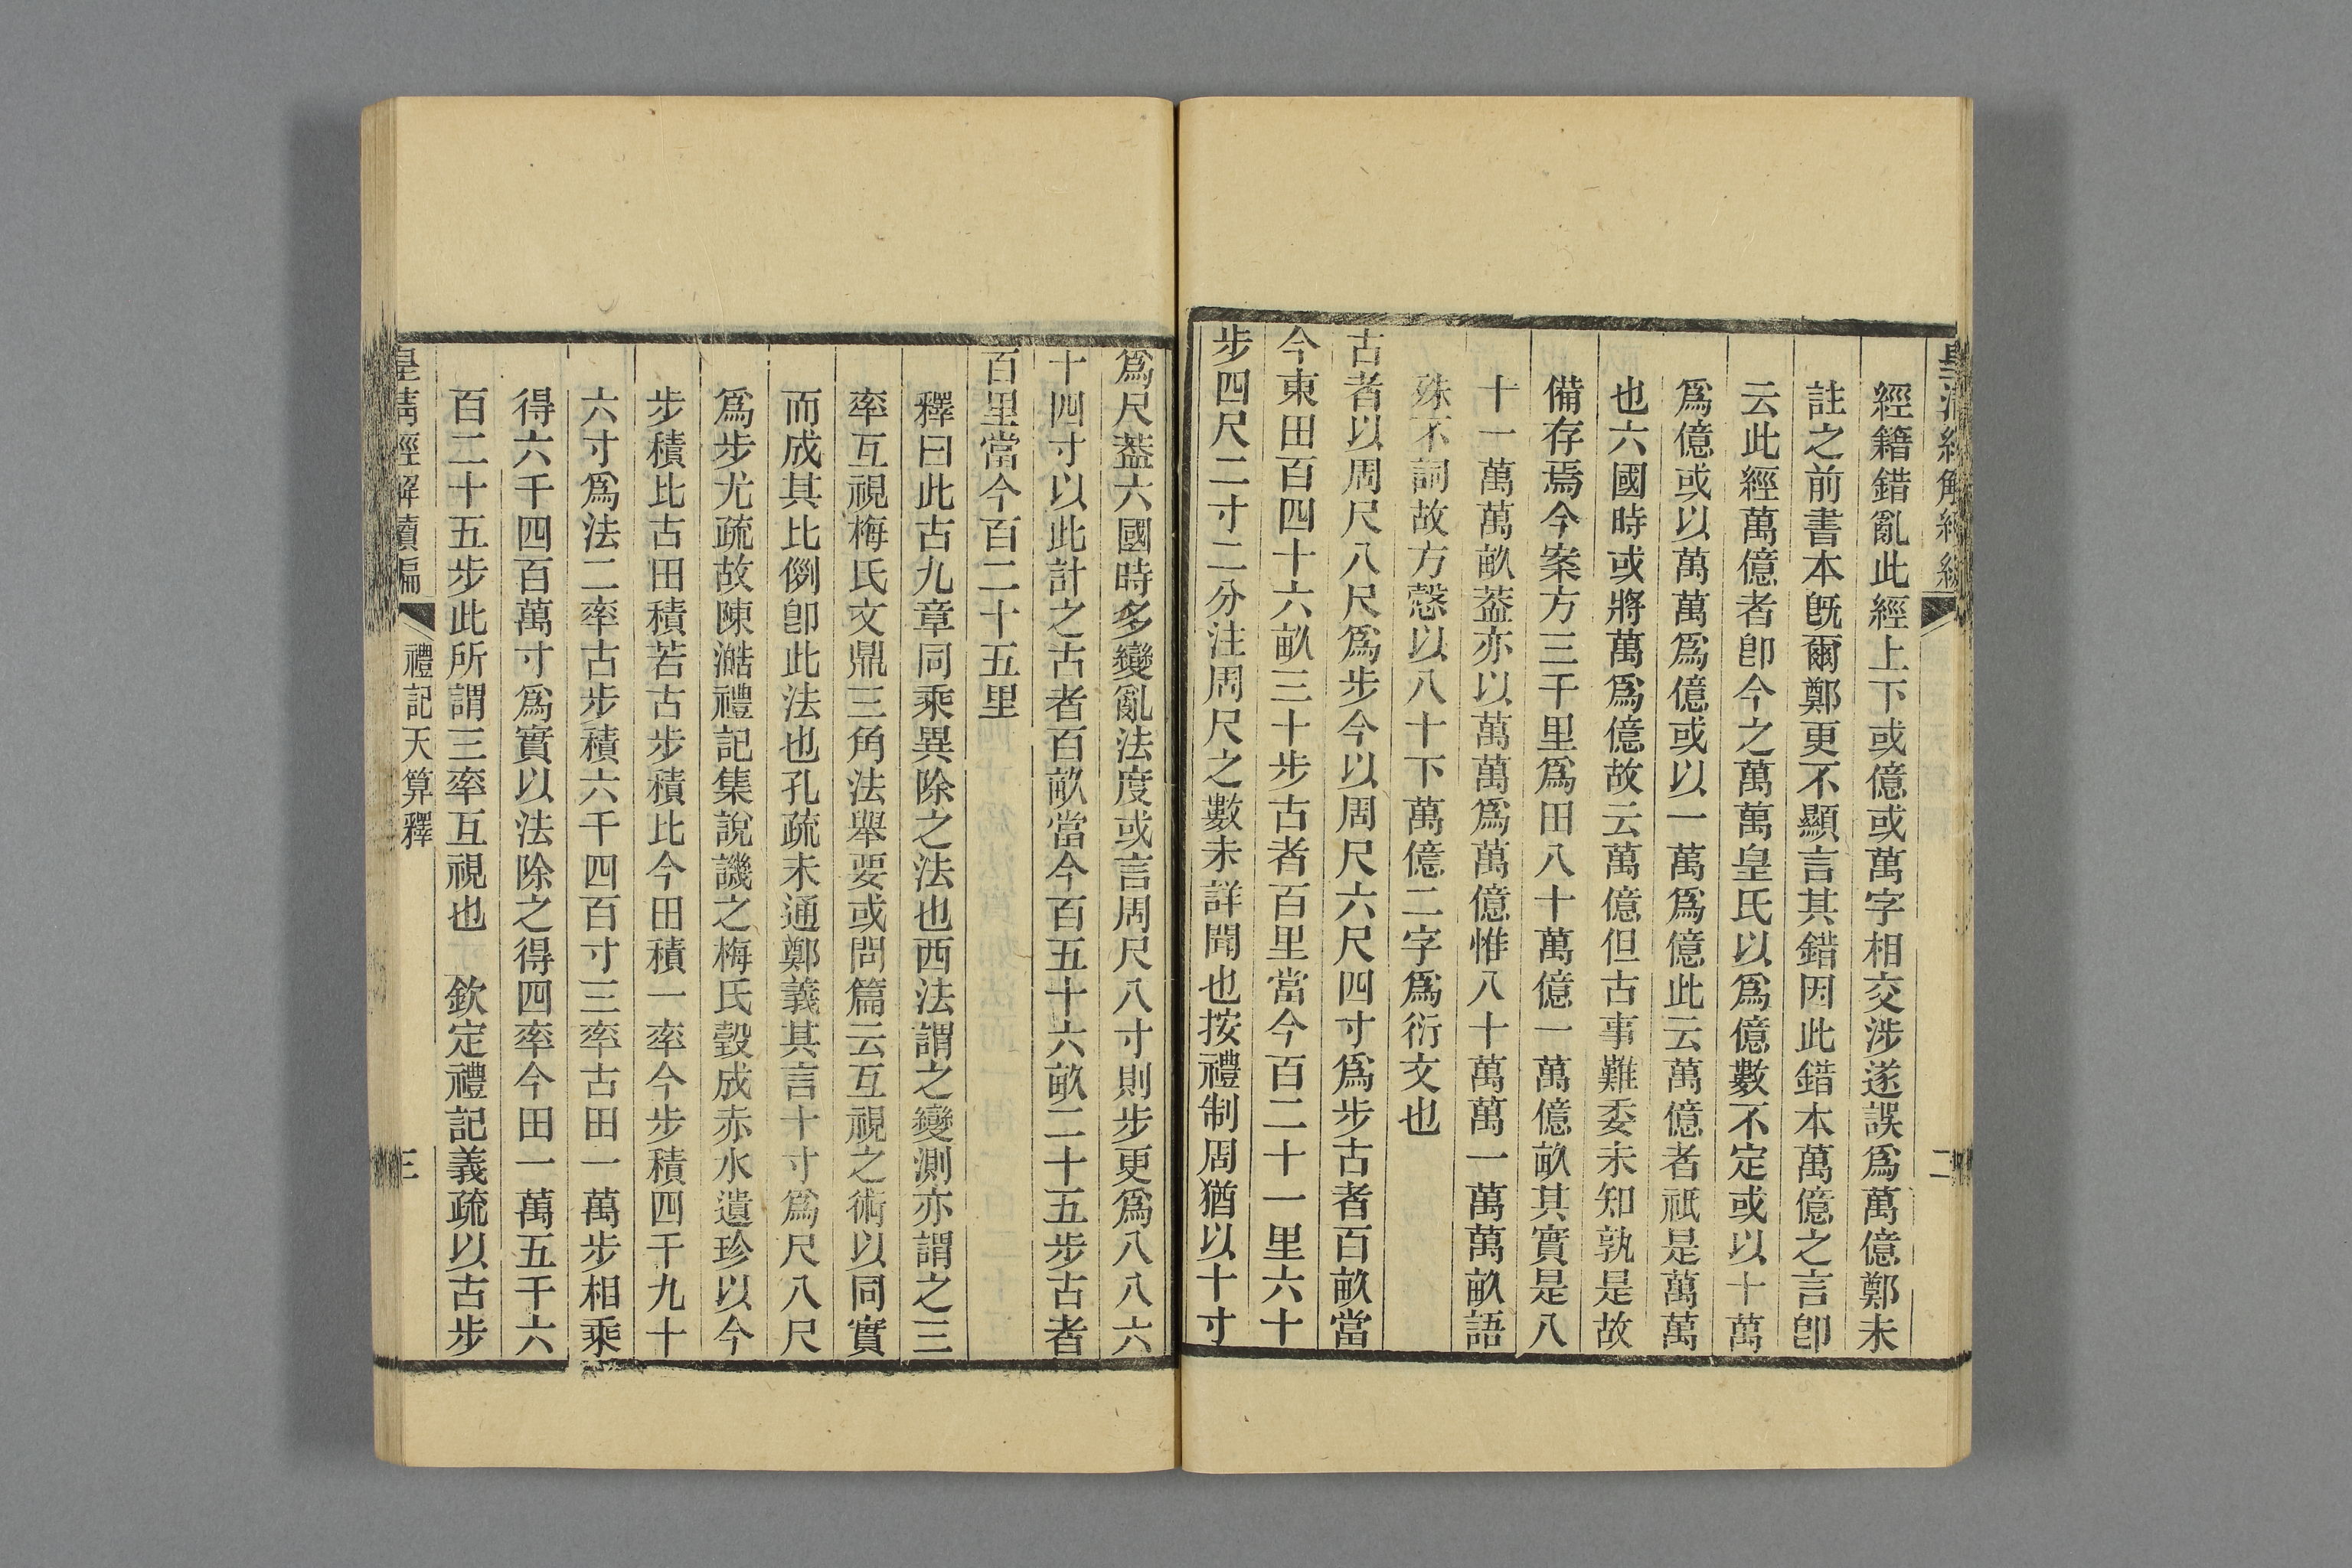 皇清經解續編
二
經籍錯亂此經上下或億或萬字相交涉遂誤爲萬億鄭未
註之前書本旣爾鄭更不顯言其錯因此錯本萬億之言卽
云此經萬億者卽今之萬萬皇氏以爲億數不定或以十萬
爲億或以萬萬爲億或以一萬爲億此云萬億者祇是萬萬
也六國時或將萬爲億故云萬億但古事難委未知孰是故
備存焉今案方三千里爲田八十萬億一萬億畝其實是八
十一萬萬畝葢亦以萬萬爲萬億惟八十萬萬一萬萬畝語
殊不詞故方慤以八十下萬億二字爲衍文也
古者以周尺八尺爲步今以周尺六尺四寸爲步古者百畝當
今東田百四十六畝三十步古者百里當今百二十一里六十
步四尺二寸二分注周尺之數未詳聞也按禮制周猶以十寸
爲尺葢六國時多變亂法度或言周尺八寸則步更爲八八六
十四寸以此計之古者百畝當今百五十六畝二十五步古者
百里當今百二十五里
釋曰此古九章同乘異除之法也西法謂之變測亦謂之三
率互視梅氏文鼎三角法舉要或問篇云互視之術以同實
而成其比例卽此法也孔疏未通鄭義其言十寸爲尺八尺
爲步尤疏故陳澔禮記集說譏之梅氏瑴成赤水遺珍以今
步積比古田積若古步積比今田積一率今步積四千九十
六寸爲法二率古步積六千四百寸三率古田一萬步相乘
得六千四百萬寸爲實以法除之得四率今田一萬五千六
百二十五步此所謂三率互視也　欽定禮記義疏以古步
皇清經解續編
禮記天算釋
三